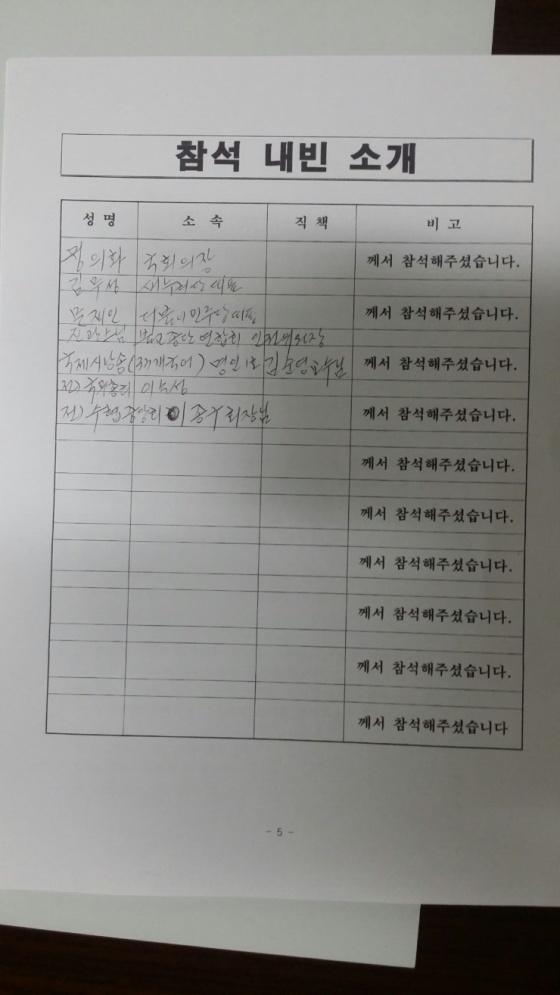 참석 내빈 소개
성 명 소 속 직 책 비 고
정의화 국회의장 께서 참석해주셨습니다.
김무성 새누리당대표
문재인 더불어민주당대표 께서 참석해주셨습니다.
진관스님 불교종단연합회 인권위원장
국제시낭송(3개국어) 명인1호 김순영교수님 께서 참석해주셨습니다.
전) 국무총리 이수성
전) 수협중앙회 이종구회장님 께서 참석해주셨습니다.
께서 참석해주셨습니다.
께서 참석해주셨습니다.
께서 참석해주셨습니다.
께서 참석해주셨습니다.
께서 참석해주셨습니다.
께서 참석해주셨습니다
- 5 -